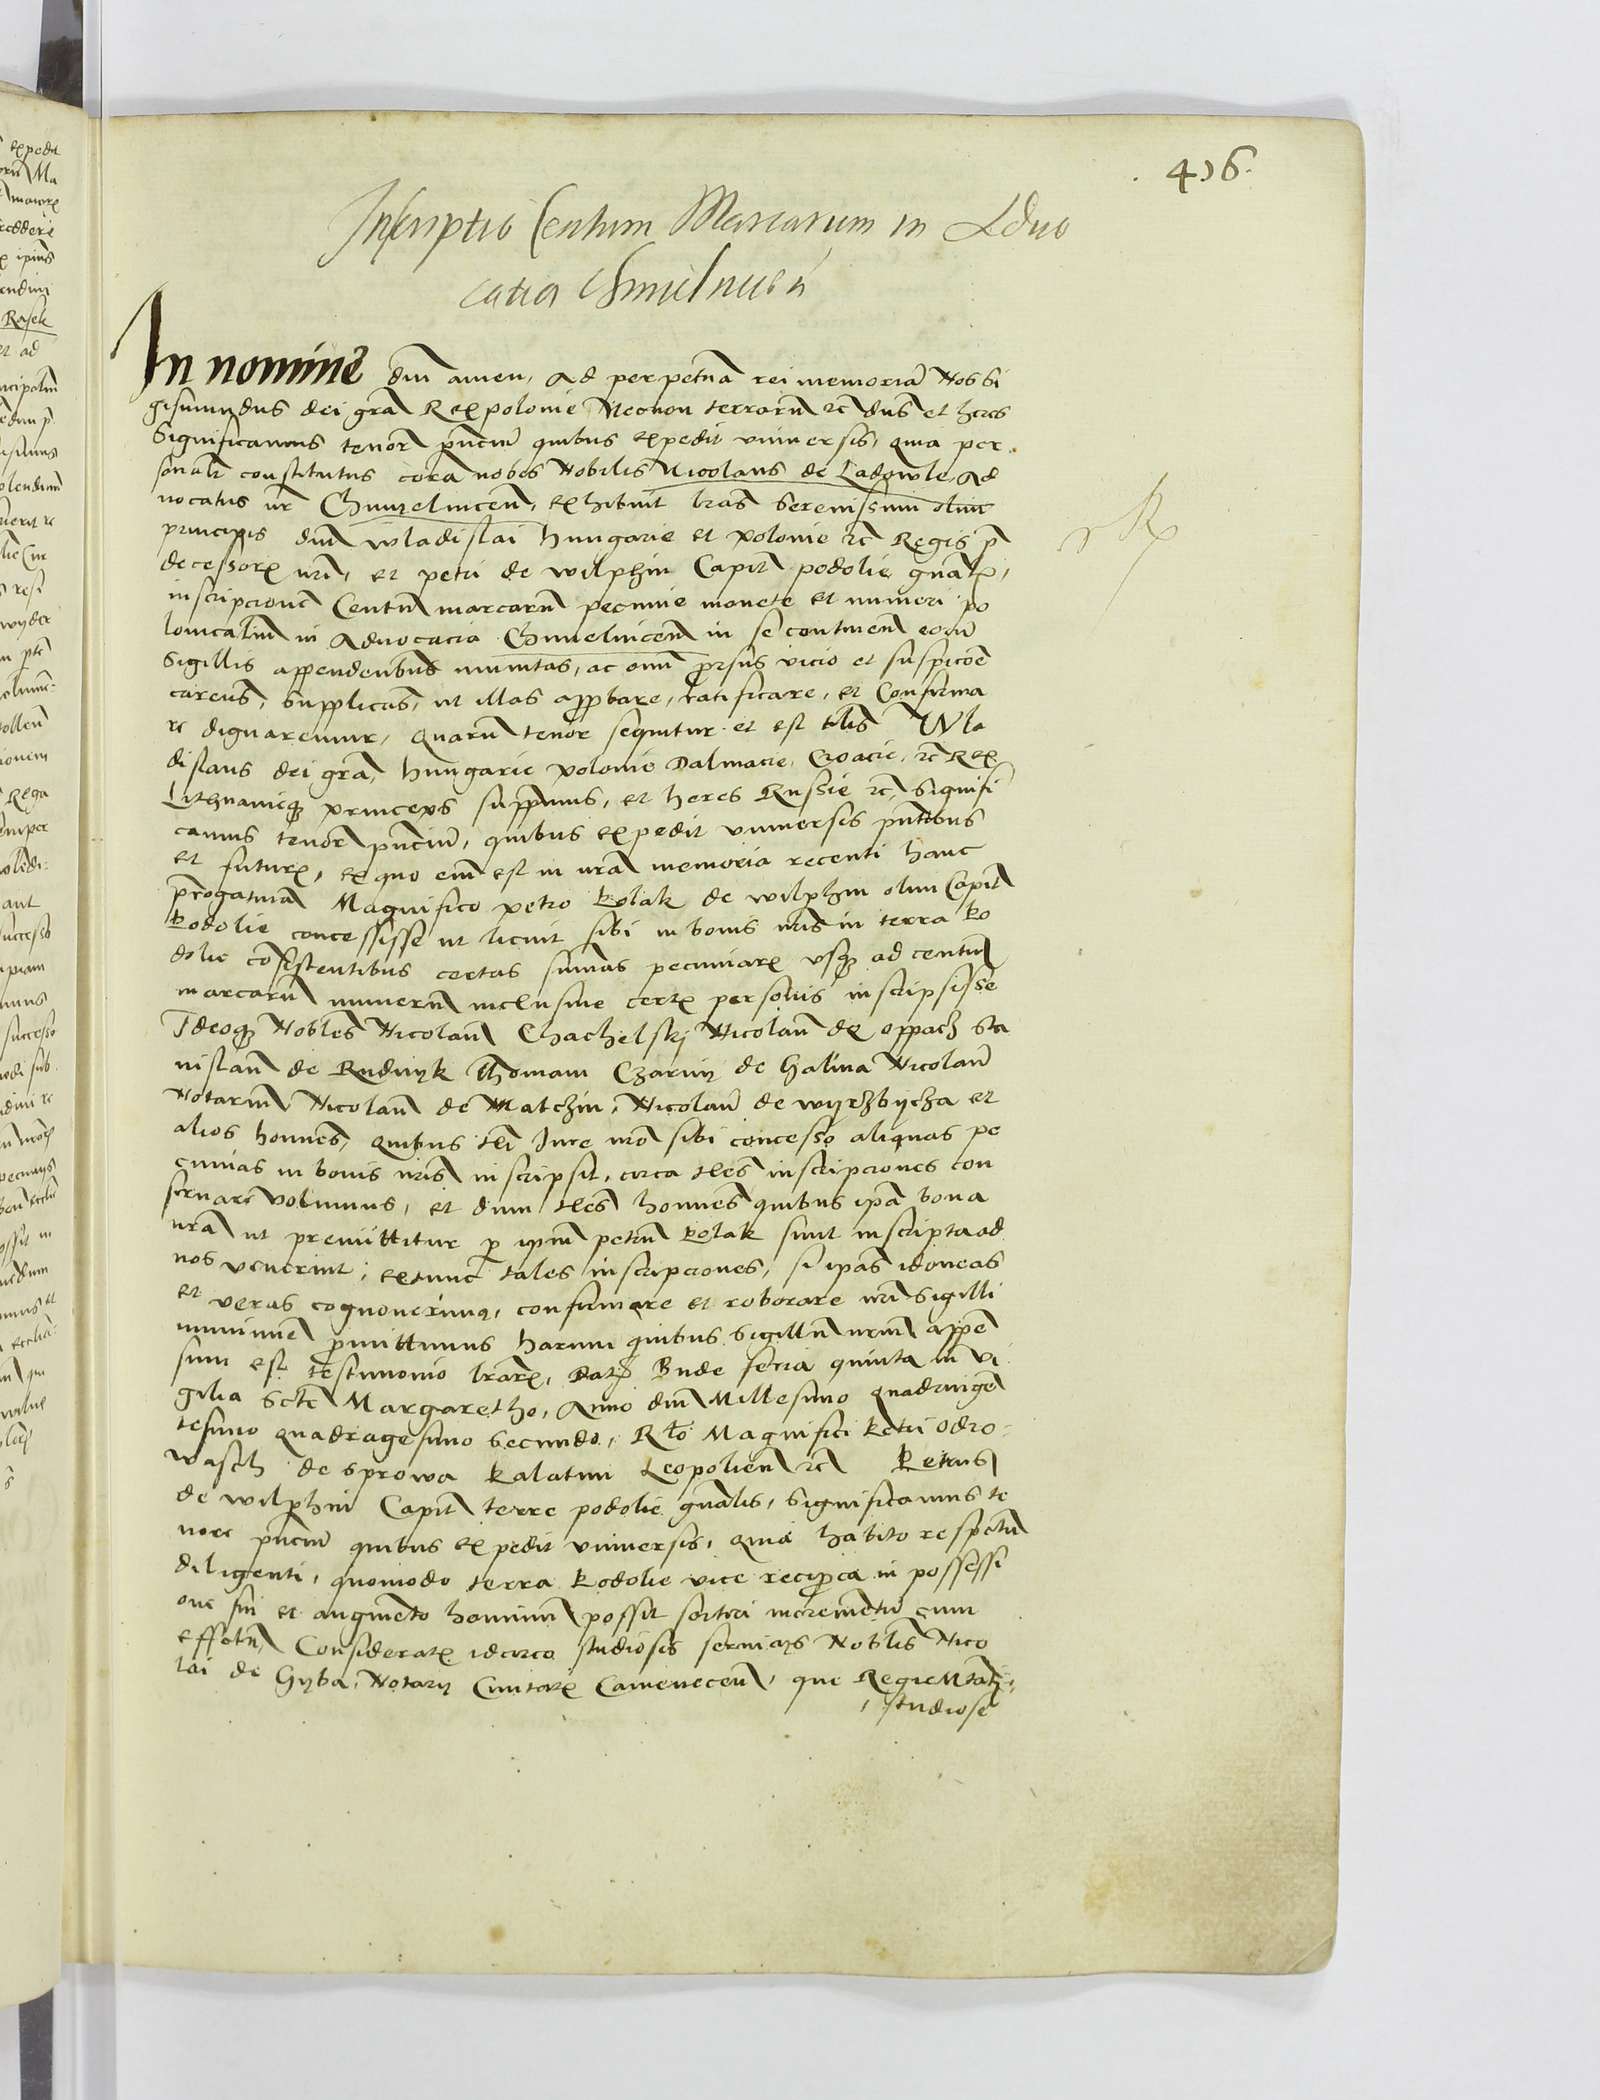 416.
Inscriptio Centum Marcarum in Advo
catia Chmielnicen
In nomine dni amen, Ad perpetua rei memoria Nos Si
gismundus dei gra Rex polonie Necnon terraru rc dns et heres
Significamus tenor pncium quibus expedit universis, quia per
sonalr constitutus cora nobis Nobilis Nicolaus de Ladowle, Ad
vocatus nr Chmyelnicen, exhibuit lras Serenissimi olim
principis dni wladislai hungarie et polonie rc Regis p
decessoris nri, et petri de wlphin Capit podolie gnalis,
inscripcione Centu marcaru pecunie monete et numeri po
lonicaliu in Advocacia Chmelnicen in se continen eoru
Sigillis appendentibus munitas, ac omi prorsus vicio et suspicoe
carens, Supplicas, ut illas approbare, ratificare, et Confirma
re dignaremur, quaru tenor sequitur et est talis Wla
dislaus dei gra, hungarie polonie Dalmacie, Croacie, rc Rex
Lithuanieq princeps supprmus, et heres Russie rc, Signifi
camus tenor pncium, quibus expedit universis pntibus
et futuris, ex quo eni est in nra memoria recenti hanc
progatiua Magnifico petro polak de wilphin olim Capit
podolie concessisse ut licuit sibi in bonis nris in terra po
dolie cosistentibus certas sumas pecuniaru usq ad centu
marcaru numeru inclusiue certis personis inscripsisse
Ideoq Nobles Nicolau Chachelskj Nicolau de oppach Sta
nislau de Rudnyk Thomam Czarnij de halina Nicolau
Notariu Nicolau de Matchin, Nicolau de wijrzbijcza et
alios homnes, quibus tli Jure nro sibi concesso aliquas pe
cunias in bonis nris inscripsit, circa tles inscripciones con
seruare volumus, et dum tles homnes quibus ipa bona
nra ut premittitur p ipm petru polak sunt inscripta ad
nos venerint, extunc tales inscripciones, si ipas idoneas
et veras cognouerimq, confirmare et roborare nri Sigilli
munimne pmittimus harum quibus Sigillu nrum appe
sum est testimonio lraru, Datu Bude feria quinta in vi
gilia Scte Margarethe, Anno dni Millesimo quadringe
tesimo quadragesimo secundo, Rlto Magnifici petri odro
wasch de Sprowa palatini Leopolien rc Petrus
de wilphin Capit terre podolie gnalis, Significamus te
nore pncium quibus expedit universis, quia habito respectu
diligenti, quomodo terra podolie vice reciproca in possessi
one sui et augmento hominu possit sortiri incrementu cum
effectu, Consideratis idcirco studiosis seruicijs Noblis Nico
lai de Gyba, Notarij Ciuitatis Camenecen, que Regie Mtati,
studiose